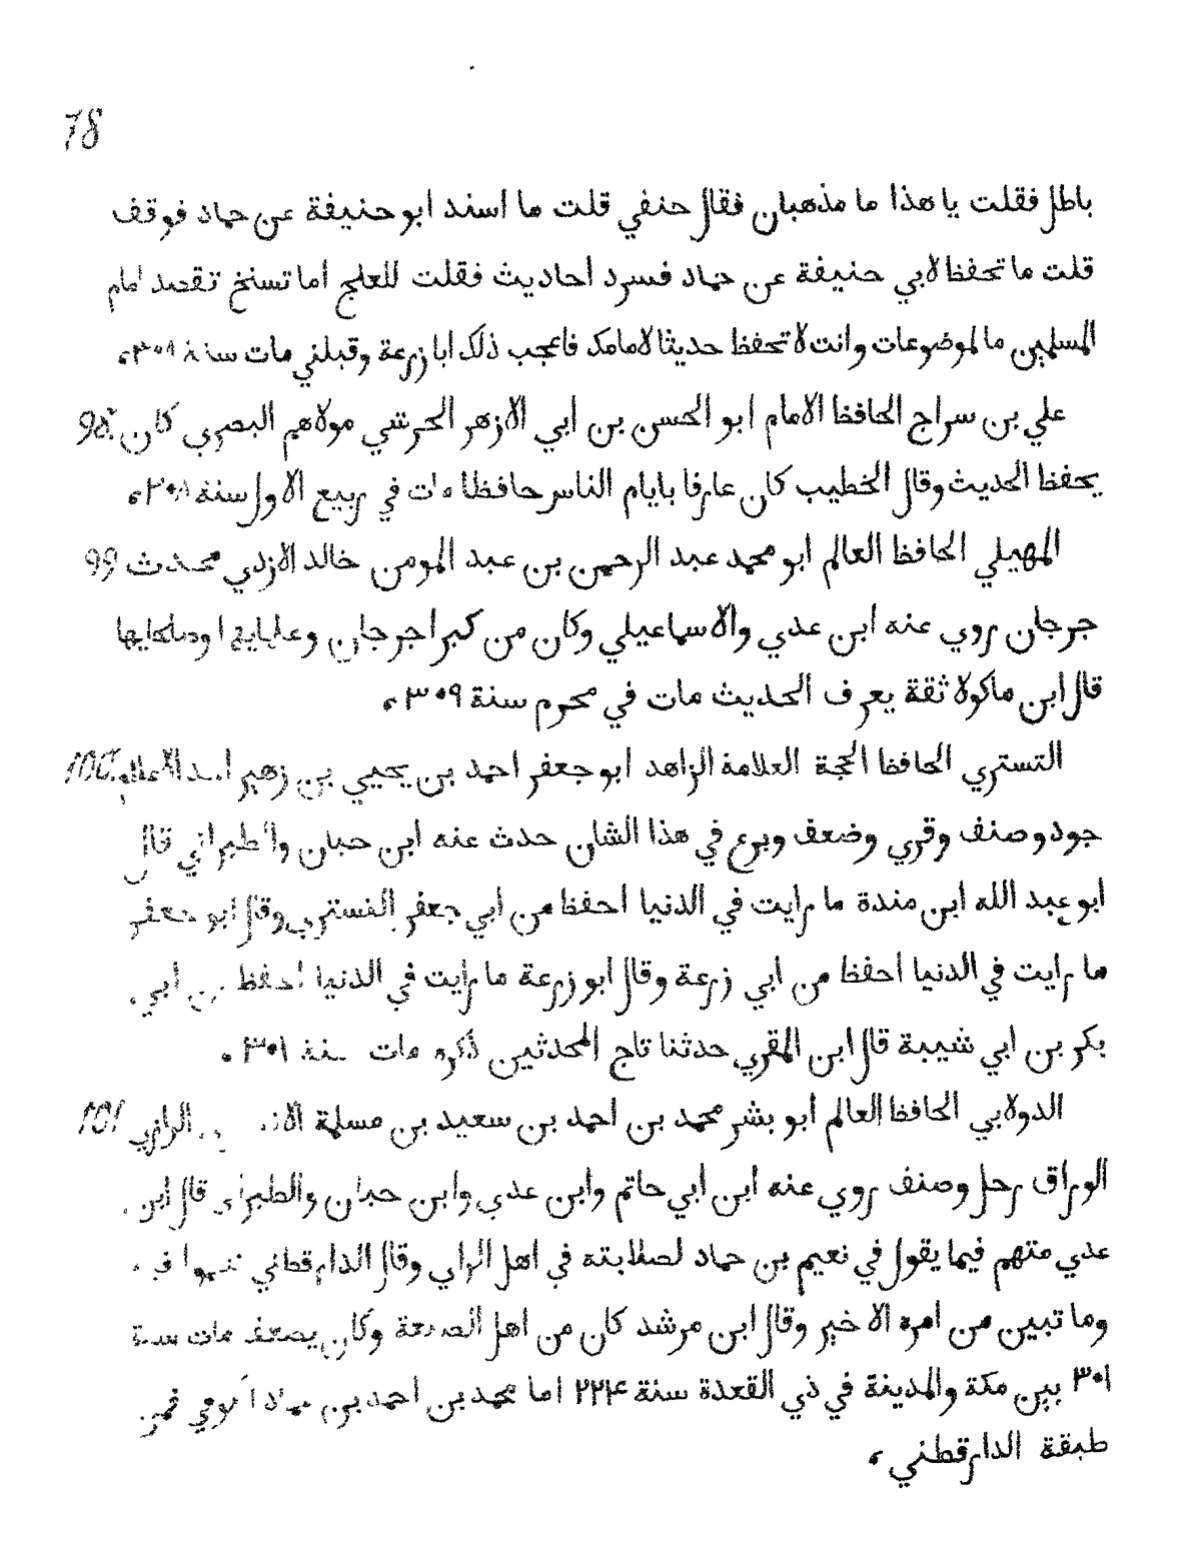 78
باطل فقلت يا هذا ما مذهبان فقال حنفي قلت ما اسند ابو حنيفة عن حماد فوقف
قلت ما تحفظ لابي حنيفة عن حماد فسرد احاديث فقلت للعلج اما تسنخ تقصد امام
المسلمين مالموضوعات وانت لا تحفظ حديثا لامامك فاعجب ذلك ابا زرعة وقبلني مات سنة ٣٠٩
علي بن سراج الحافظ الامام ابو الحسن بن ابي الازهر الحرشي مولاهم البصري كان 98
يحفظ الحديث وقال الخطيب كان عارفا بايام الناس حافظا مات في ربيع الاول سنة ٣٠٨
المهيلي الحافظ العالم ابو محمد عبد الرحمن بن عبد المومن خالد الازدي محدث 99
جرجان روي عنه ابن عدي والاسماعيلي وكان من كبرا جرجان و
قال ابن ماكولا ثقة يعرف الحديث مات في محرم سنة ٣٠٩
التستري الحافظ الحجة العلامة الزاهد ابو جعفر احمد بن يحيي بن زهير احد الاعلام 100
جود وصنف وقري وضعف وبرع في هذا الشان حدث عنه ابن حبان والطبراني قال
ابو عبد الله ابن مندة ما رايت في الدنيا احفظ من ابي جعفر التستري وقال ابو جعفر
ما رايت في الدنيا احفظ من ابي زرعة وقال ابو زرعة ما رايت في الدنيا احفظ من ابي
بكر بن ابي شيبة قال ابن المقري حدثنا تاج المحدثين ذكره مات سنة ٣٠١
الدولابي الحافظ العالم ابو بشر محمد بن احمد بن سعيد بن مسلمة الرازي 101
الوراق رحل وصنف روي عنه ابن ابي حاتم وابن عدي وابن حبان والطبراني قال ابن
عدي متهم فيما يقول في نعيم بن حماد لصلابته في اهل الراي وقال الدارقطني
وما تبين من امره الا خير وقال ابن مرشد كان من اهل الصنعة وكان يضعف مات سنة
٣٠١ بين مكة والمدينة في ذي القعدة سنة ٢٢٤ اما محمد بن احمد بن حماد فمن
طبقة الدارقطني